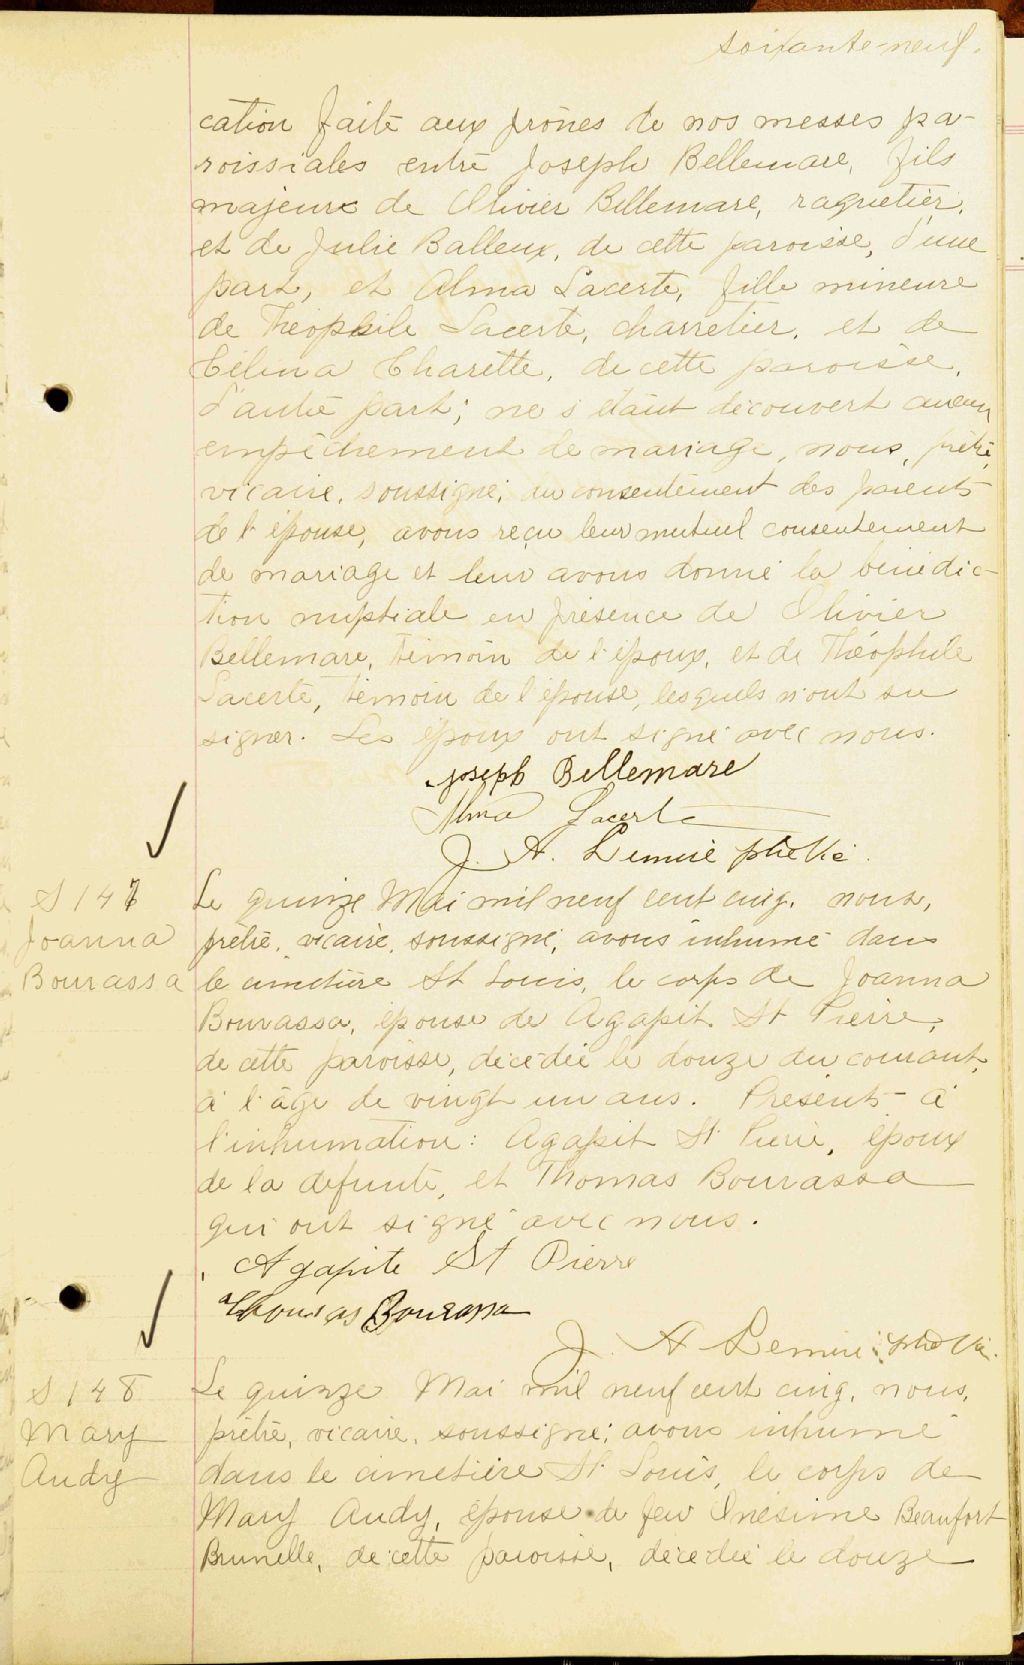 soixante-neuf.
cation faite aux prônes de nos messes pa-
roissiales entre Joseph Bellemare, fils
majeur de Olivier Bellemare, raquetier,
et de Julie Balleux, de cette paroisse, d'une
part, et Alma Lacerte, fille mineure
de Théophile Lacerte, charretier, et de
Célina Charette, de cette paroisse,
d'autre part; ne s'étant découvert aucun
empêchement de mariage, nous, prêtre,
vicaire, soussigné, du consentement des parents
de l'épouse, avons reçu leur mutuel consentement
de mariage et leur avons donné la bénédic-
tion nuptiale en présence de Olivier
Bellemare, témoin de l'époux, et de Théophile
Lacerte, témoin de l'épouse, lesquels n'ont su
signer. Les époux ont signé avec nous.
Joseph Bellemare
Alma Lacerte
J. A. Lemire ptre Vic.
S 147
Joanna
Bourassa
Le quinze Mai mil neuf cent cinq, nous,
prêtre, vicaire, soussigné, avons inhumé dans
le cimetière St Louis, le corps de Joanna
Bourassa, épouse de Agapit St Pierre,
de cette paroisse, décédée le douze du courant,
à l'âge de vingt un ans. Présents à
l'inhumation: Agapit St Pierre, époux
de la défunte, et Thomas Bourassa
qui ont signé avec nous.
Agapite St Pierre
Thomas Bourassa
J. A Lemire ptre Vic.
S 148
Mary
Audy
Le quinze Mai mil neuf cent cinq, nous,
prêtre, vicaire, soussigné, avons inhumé
dans le cimetière St Louis, le corps de
Mary Audy, épouse de feu Onésime Beaufort
Brunelle, de cette paroisse, décédée le douze